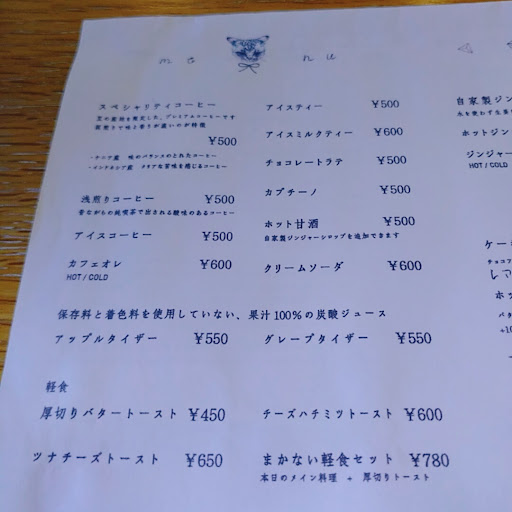 me nu
スペシャリティコーヒー
豆の産地を限定した、プレミアムコーヒーです
¥500
・ケニア産 味のバランスのとれたコーヒー
・インドネシア産 クリアな苦味を感じるコーヒー
浅煎りコーヒー ¥500
昔ながらの純喫茶で出される酸味のあるコーヒー
アイスコーヒー ¥500
カフェオレ ¥600
HOT / COLD
アイスティー ¥500
アイスミルクティー ¥600
チョコレートラテ ¥500
カプチーノ ¥500
ホット甘酒 ¥500
自家製ジンジャーシロップを追加できます
クリームソーダ ¥600
保存料と着色料を使用していない、果汁100%の炭酸ジュース
アップルタイザー ¥550
グレープタイザー ¥550
軽食
厚切りバタートースト ¥450
チーズハチミツトースト ¥600
ツナチーズトースト ¥650
まかない軽食セット ¥780
本日のメイン料理 + 厚切りトースト
自家製ジン
水を使わず生
ホットジン
ジンジャー
HOT / COLD
ケー
チョコ
レア
ホッ
バタ
+10